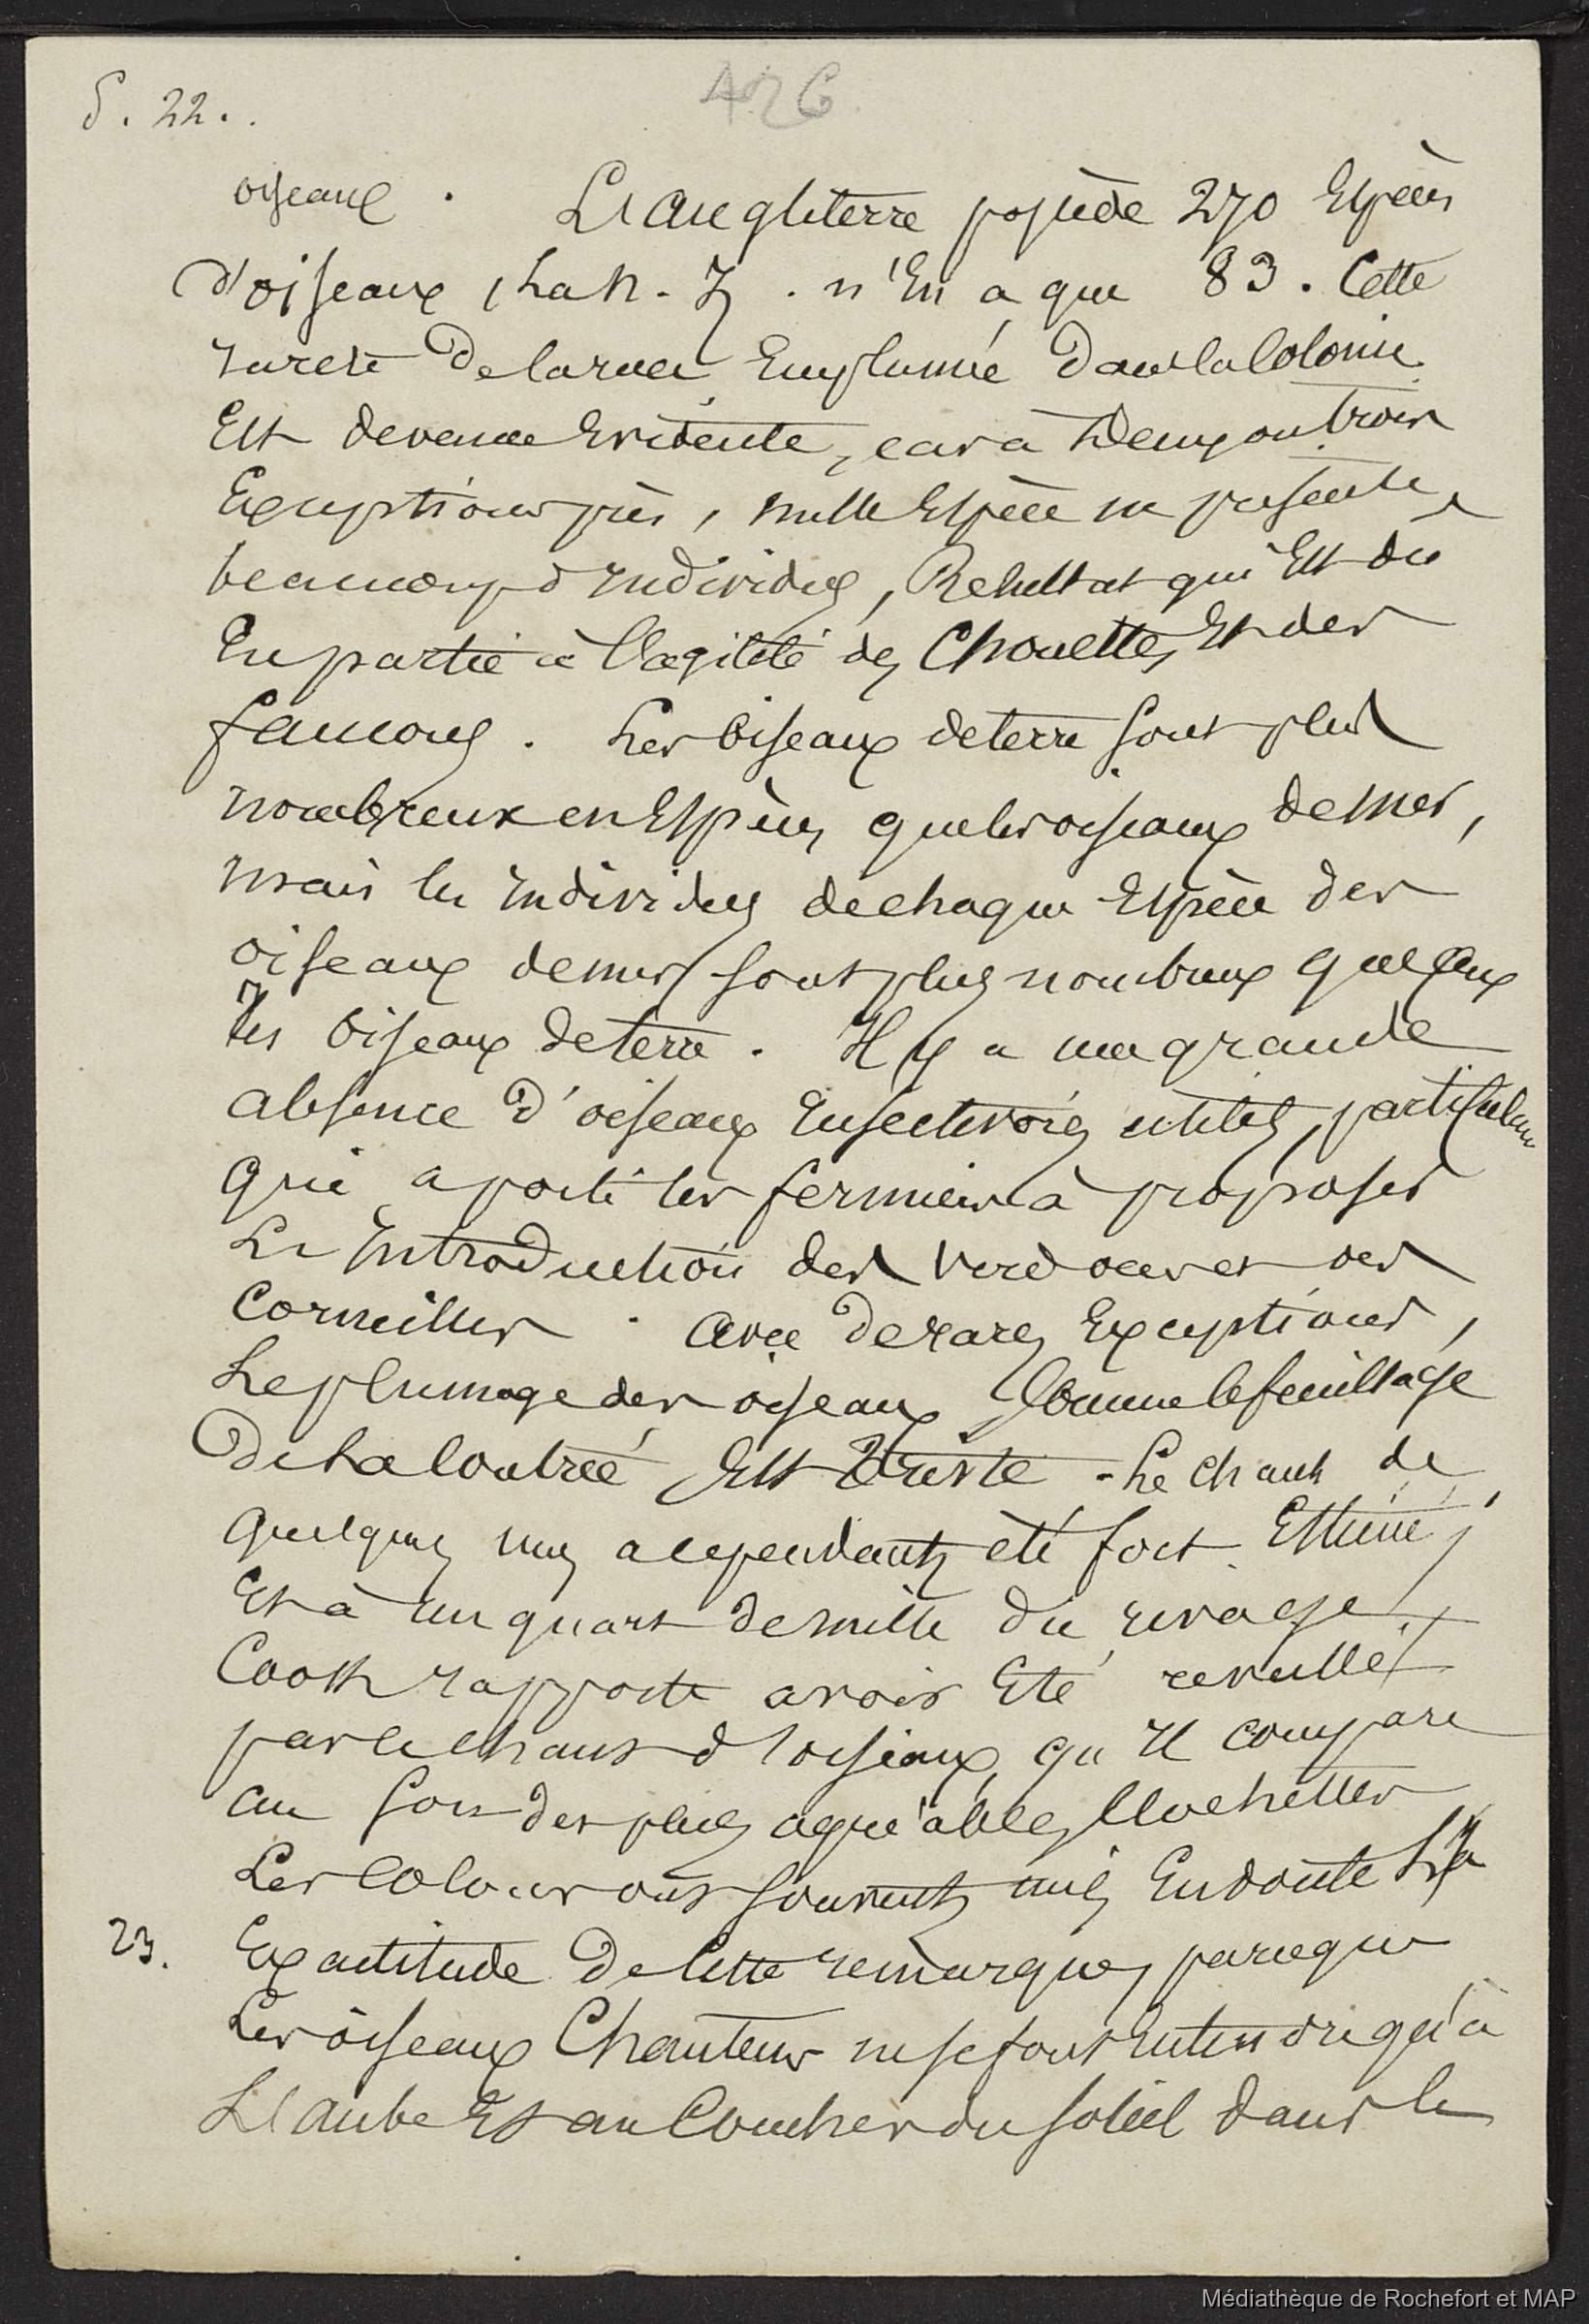 P. 22..
426
oiseaux . L'angleterre possède 270 Espèces
d'oiseaux, la N. Z. n'En a que 83. Cette
rareté de la race Emplumée dans la Colonie
Est devenue Evidente, car à deux ou trois
Exceptions près, nulle Espèce ne présente
beaucoup d'individus, Résultat qui Est du
En partie à l'agilité des Chouettes Et des
faucons. Les oiseaux de terre sont plus
nombreux en Espèces que les oiseaux de mer,
mais les individus de chaque Espèce des
oiseaux de mer sont plus nombreux que ceux
des oiseaux de terre. Il y a une grande
absence d'oiseaux Insectivores utiles,
qui a porté les fermiers à proposer
L'Introduction des et des
Corneilles. Avec de rares Exceptions,
Le plumage des oiseaux Comme le feuillage
de la Contrée, Est triste. Le chant de
quelques uns a cependant été fort Estimé,
Et à un quart de mille du rivage,
Cook rapporte avoir Eté réveillé
par le chant d'oiseaux, qu'Il compare
au son des plus agréables Clochettes
Les Colons ont souvent mis En doute L'
23. Exactitude de Cette remarque, parceque
Les oiseaux Chanteurs ne se font Entendre qu'à
L'aube Et au Coucher du soleil dans le
Médiathèque de Rochefort et MAP